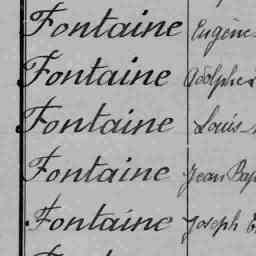 Fontaine Eugène
Fontaine Adolphe
Fontaine Louis
Fontaine Jean Bap
Fontaine Joseph